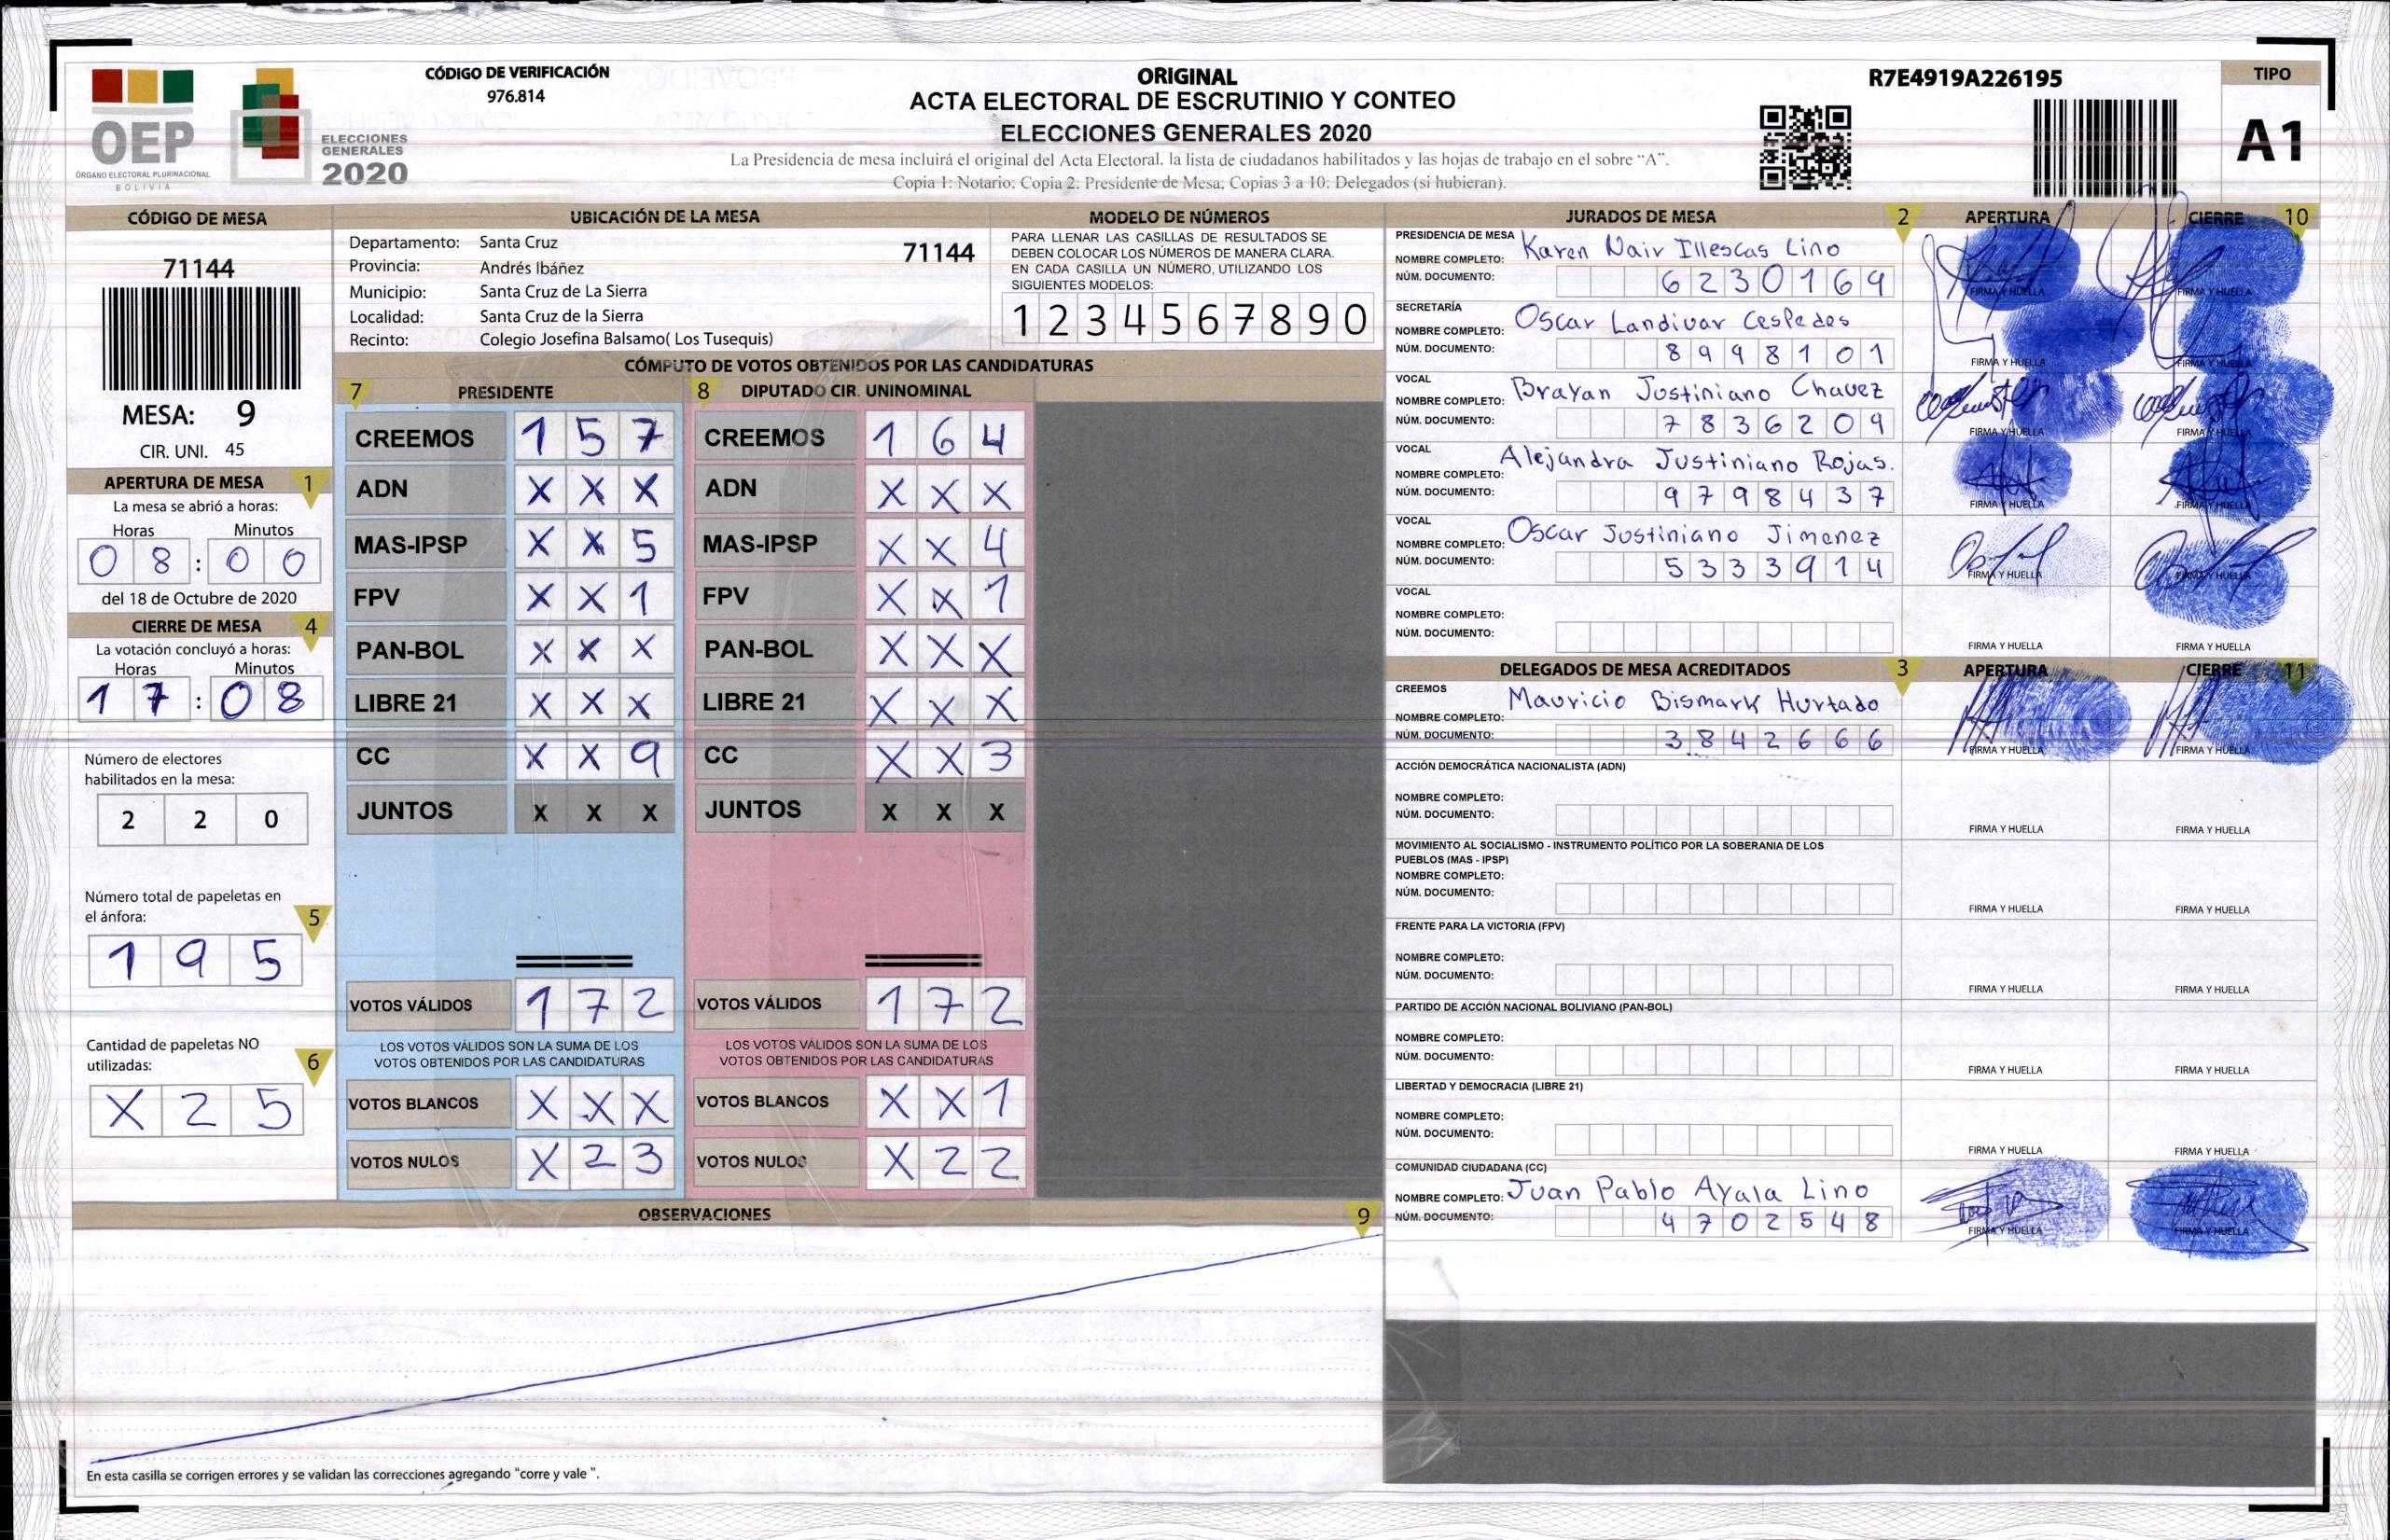 CÓDIGO DE VERIFICACIÓN
976.814
OEP
ÓRGANO ELECTORAL PLURINACIONAL
BOLIVIA
ELECCIONES
GENERALES
2020
ORIGINAL
ACTA ELECTORAL DE ESCRUTINIO Y CONTEO
ELECCIONES GENERALES 2020
La Presidencia de mesa incluirá el original del Acta Electoral, la lista de ciudadanos habilitados y las hojas de trabajo en el sobre “A”.
Copia 1: Notario; Copia 2: Presidente de Mesa; Copias 3 a 10: Delegados (si hubieran).
R7E4919A226195
TIPO
A1
CÓDIGO DE MESA
71144
MESA: 9
CIR. UNI. 45
APERTURA DE MESA 1
La mesa se abrió a horas:
Horas Minutos
0 8 : 0 0
del 18 de Octubre de 2020
CIERRE DE MESA 4
La votación concluyó a horas:
Horas Minutos
1 7 : 0 8
Número de electores
habilitados en la mesa:
2 2 0
Número total de papeletas en
el ánfora: 5
1 9 5
Cantidad de papeletas NO
utilizadas: 6
X 2 5
UBICACIÓN DE LA MESA
Departamento: Santa Cruz 71144
Provincia: Andrés Ibáñez
Municipio: Santa Cruz de La Sierra
Localidad: Santa Cruz de la Sierra
Recinto: Colegio Josefina Balsamo( Los Tusequis)
MODELO DE NÚMEROS
PARA LLENAR LAS CASILLAS DE RESULTADOS SE
DEBEN COLOCAR LOS NÚMEROS DE MANERA CLARA.
EN CADA CASILLA UN NÚMERO, UTILIZANDO LOS
SIGUIENTES MODELOS:
1 2 3 4 5 6 7 8 9 0
CÓMPUTO DE VOTOS OBTENIDOS POR LAS CANDIDATURAS
7 PRESIDENTE 8 DIPUTADO CIR. UNINOMINAL
CREEMOS 1 5 7 CREEMOS 1 6 4
ADN X X X ADN X X X
MAS-IPSP X X 5 MAS-IPSP X X 4
FPV X X 1 FPV X X 1
PAN-BOL X X X PAN-BOL X X X
LIBRE 21 X X X LIBRE 21 X X X
CC X X 9 CC X X 3
JUNTOS X X X JUNTOS X X X
VOTOS VÁLIDOS 1 7 2 VOTOS VÁLIDOS 1 7 2
LOS VOTOS VÁLIDOS SON LA SUMA DE LOS LOS VOTOS VÁLIDOS SON LA SUMA DE LOS
VOTOS OBTENIDOS POR LAS CANDIDATURAS VOTOS OBTENIDOS POR LAS CANDIDATURAS
VOTOS BLANCOS X X X VOTOS BLANCOS X X 1
VOTOS NULOS X 2 3 VOTOS NULOS X 2 2
OBSERVACIONES 9
En esta casilla se corrigen errores y se validan las correcciones agregando "corre y vale ".
JURADOS DE MESA 2 APERTURA CIERRE 10
PRESIDENCIA DE MESA
NOMBRE COMPLETO: Karen Nair Illescas Lino
NÚM. DOCUMENTO: 6 2 3 0 1 6 9
FIRMA Y HUELLA FIRMA Y HUELLA
SECRETARÍA
NOMBRE COMPLETO: Oscar Landivar Cespedes
NÚM. DOCUMENTO: 8 9 9 8 1 0 1
FIRMA Y HUELLA FIRMA Y HUELLA
VOCAL
NOMBRE COMPLETO: Brayan Justiniano Chavez
NÚM. DOCUMENTO: 7 8 3 6 2 0 9
FIRMA Y HUELLA FIRMA Y HUELLA
VOCAL
NOMBRE COMPLETO: Alejandra Justiniano Rojas.
NÚM. DOCUMENTO: 9 7 9 8 4 3 7
FIRMA Y HUELLA FIRMA Y HUELLA
VOCAL
NOMBRE COMPLETO: Oscar Justiniano Jimenez
NÚM. DOCUMENTO: 5 3 3 3 9 1 4
FIRMA Y HUELLA FIRMA Y HUELLA
VOCAL
NOMBRE COMPLETO:
NÚM. DOCUMENTO:
FIRMA Y HUELLA FIRMA Y HUELLA
DELEGADOS DE MESA ACREDITADOS 3 APERTURA CIERRE 11
CREEMOS
NOMBRE COMPLETO: Mauricio Bismark Hurtado
NÚM. DOCUMENTO: 3 8 4 2 6 6 6
FIRMA Y HUELLA FIRMA Y HUELLA
ACCIÓN DEMOCRÁTICA NACIONALISTA (ADN)
NOMBRE COMPLETO:
NÚM. DOCUMENTO:
FIRMA Y HUELLA FIRMA Y HUELLA
MOVIMIENTO AL SOCIALISMO - INSTRUMENTO POLÍTICO POR LA SOBERANIA DE LOS
PUEBLOS (MAS - IPSP)
NOMBRE COMPLETO:
NÚM. DOCUMENTO:
FIRMA Y HUELLA FIRMA Y HUELLA
FRENTE PARA LA VICTORIA (FPV)
NOMBRE COMPLETO:
NÚM. DOCUMENTO:
FIRMA Y HUELLA FIRMA Y HUELLA
PARTIDO DE ACCIÓN NACIONAL BOLIVIANO (PAN-BOL)
NOMBRE COMPLETO:
NÚM. DOCUMENTO:
FIRMA Y HUELLA FIRMA Y HUELLA
LIBERTAD Y DEMOCRACIA (LIBRE 21)
NOMBRE COMPLETO:
NÚM. DOCUMENTO:
FIRMA Y HUELLA FIRMA Y HUELLA
COMUNIDAD CIUDADANA (CC)
NOMBRE COMPLETO: Juan Pablo Ayala Lino
NÚM. DOCUMENTO: 4 7 0 2 5 4 8
FIRMA Y HUELLA FIRMA Y HUELLA